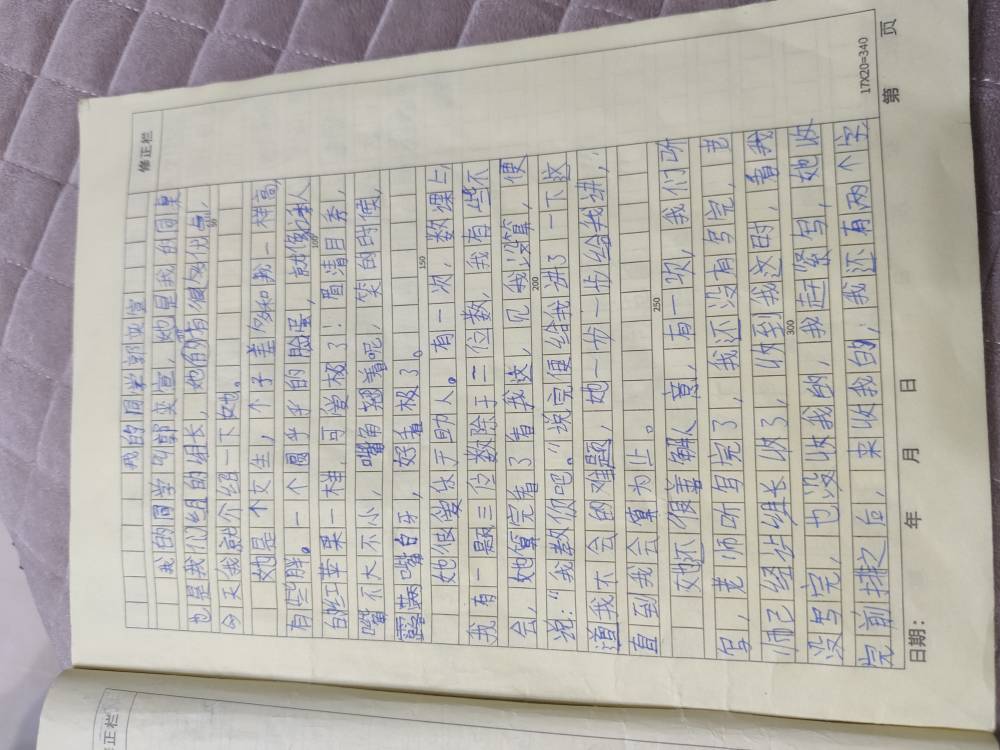 修正栏
我的同学郭奕宣
我的同学叫郭奕宣，她是我的同桌
也是我们组的组长，她的
今天我就介绍一下她。
她是个女生，个子差不多和我一样高，
有些胖。一个圆乎乎的脸蛋，就像
红苹果一样，可爱极了！眉清目秀，
嘴不大不小，嘴角翘着呢，笑的时候，
露两嘴白牙，好看极了。
她很爱乐于助人。有一次，数课上，
我有一题三位数除于二位数，我有些不
会，她算完看了看我这，见我没算，便
说：“我教你吧。”说完便给我讲了一下这
道我不会的难题，她一步一步给我讲，
直到我会算为止。
她还很善解人意，有一次，我们听
写，老师听写完了，我还没有写完，老
师已经让组长收了，收到我这时，看我
没写完，也没收我的，我赶紧写，她收
完前排之后，来收我的，我还有两个字
50
100
150
200
250
300
17X20=340
日期： 年 月 日 第 页
修正栏